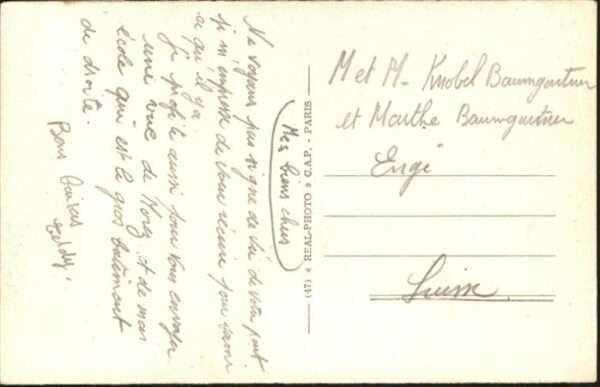 Mes biens chers
Ne voyant pas signe de vie de votre part
je m'empresse de vous écrire pour savoir
ce qu'il y a.
je profite aussi pour vous envoyer
une vue de Morez et de mon
école qui est le gros batiment
de droite.
Bons Baisers
(47) REAL-PHOTO C.A.P. - PARIS
M et M. Knobel Baumgartner
et Marthe Baumgartner
Engi
Suisse.